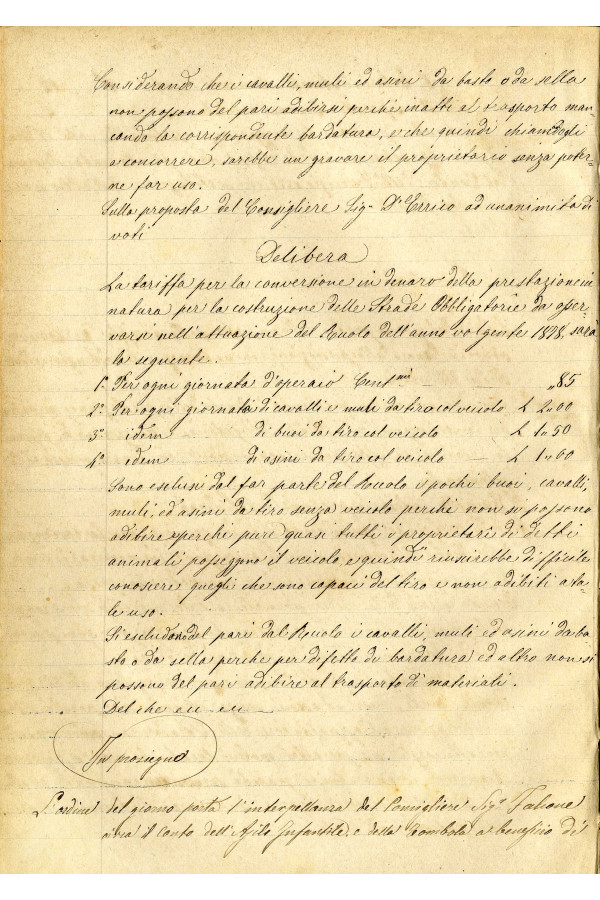 Considerando che i cavalli, muli ed asini da basto o da sella
non possono del pari adibirsi perchè inatti al trasporto man-
cando la corrispondente bardatura, e che quindi chiamandoli
a concorrere, sarebbe un gravare il proprietario senza poter-
ne far uso.
Sulla proposta del Consigliere Sig.r D'Errico ad unanimità di
voti
Delibera
La tariffa per la conversione in denaro della prestazione in
natura per la costruzione delle Strade Obbligatorie da osser-
varsi nell'attuazione del Ruolo dell'anno volgente 1878, sarà
la seguente.
1.° Per ogni giornata d'operaio Cent.mi — „85
2.° Per ogni giornata di cavalli e muli da tiro col veicolo £ 2„00
3.° idem di buoi da tiro col veicolo £ 1„50
4.° idem di asini da tiro col veicolo — £ 1„00
Sono esclusi dal far parte del Ruolo i pochi buoi, cavalli,
muli, ed asini da tiro senza veicolo perchè non si possono
adibire e perchè pure quasi tutti i proprietari di detti
animali posseggono il veicolo e quindi riuscirebbe difficile
conoscere quegli che sono capaci del tiro e non adibiti a ta-
le uso.
Si escludono del pari dal Ruolo i cavalli, muli ed asini da ba-
sto o da sella perchè per difetto di bardatura ed altro non si
possono del pari adibire al trasporto di materiali.
Del che
In prosieguo
L'ordine del giorno porta l'interpellanza del Consigliere Sig.r Falcone
circa il Conto dell'Asilo Infantile, e della Tombola a beneficio di